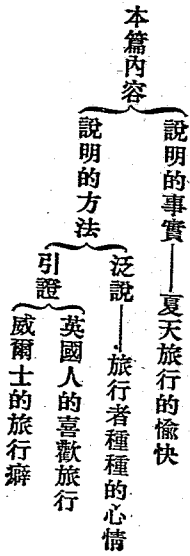 本篇內容
說明的事實——夏天旅行的愉快
說明的方法
泛說——旅行者種種的心情
引證
英國人的喜歡旅行
威爾士的旅行癖